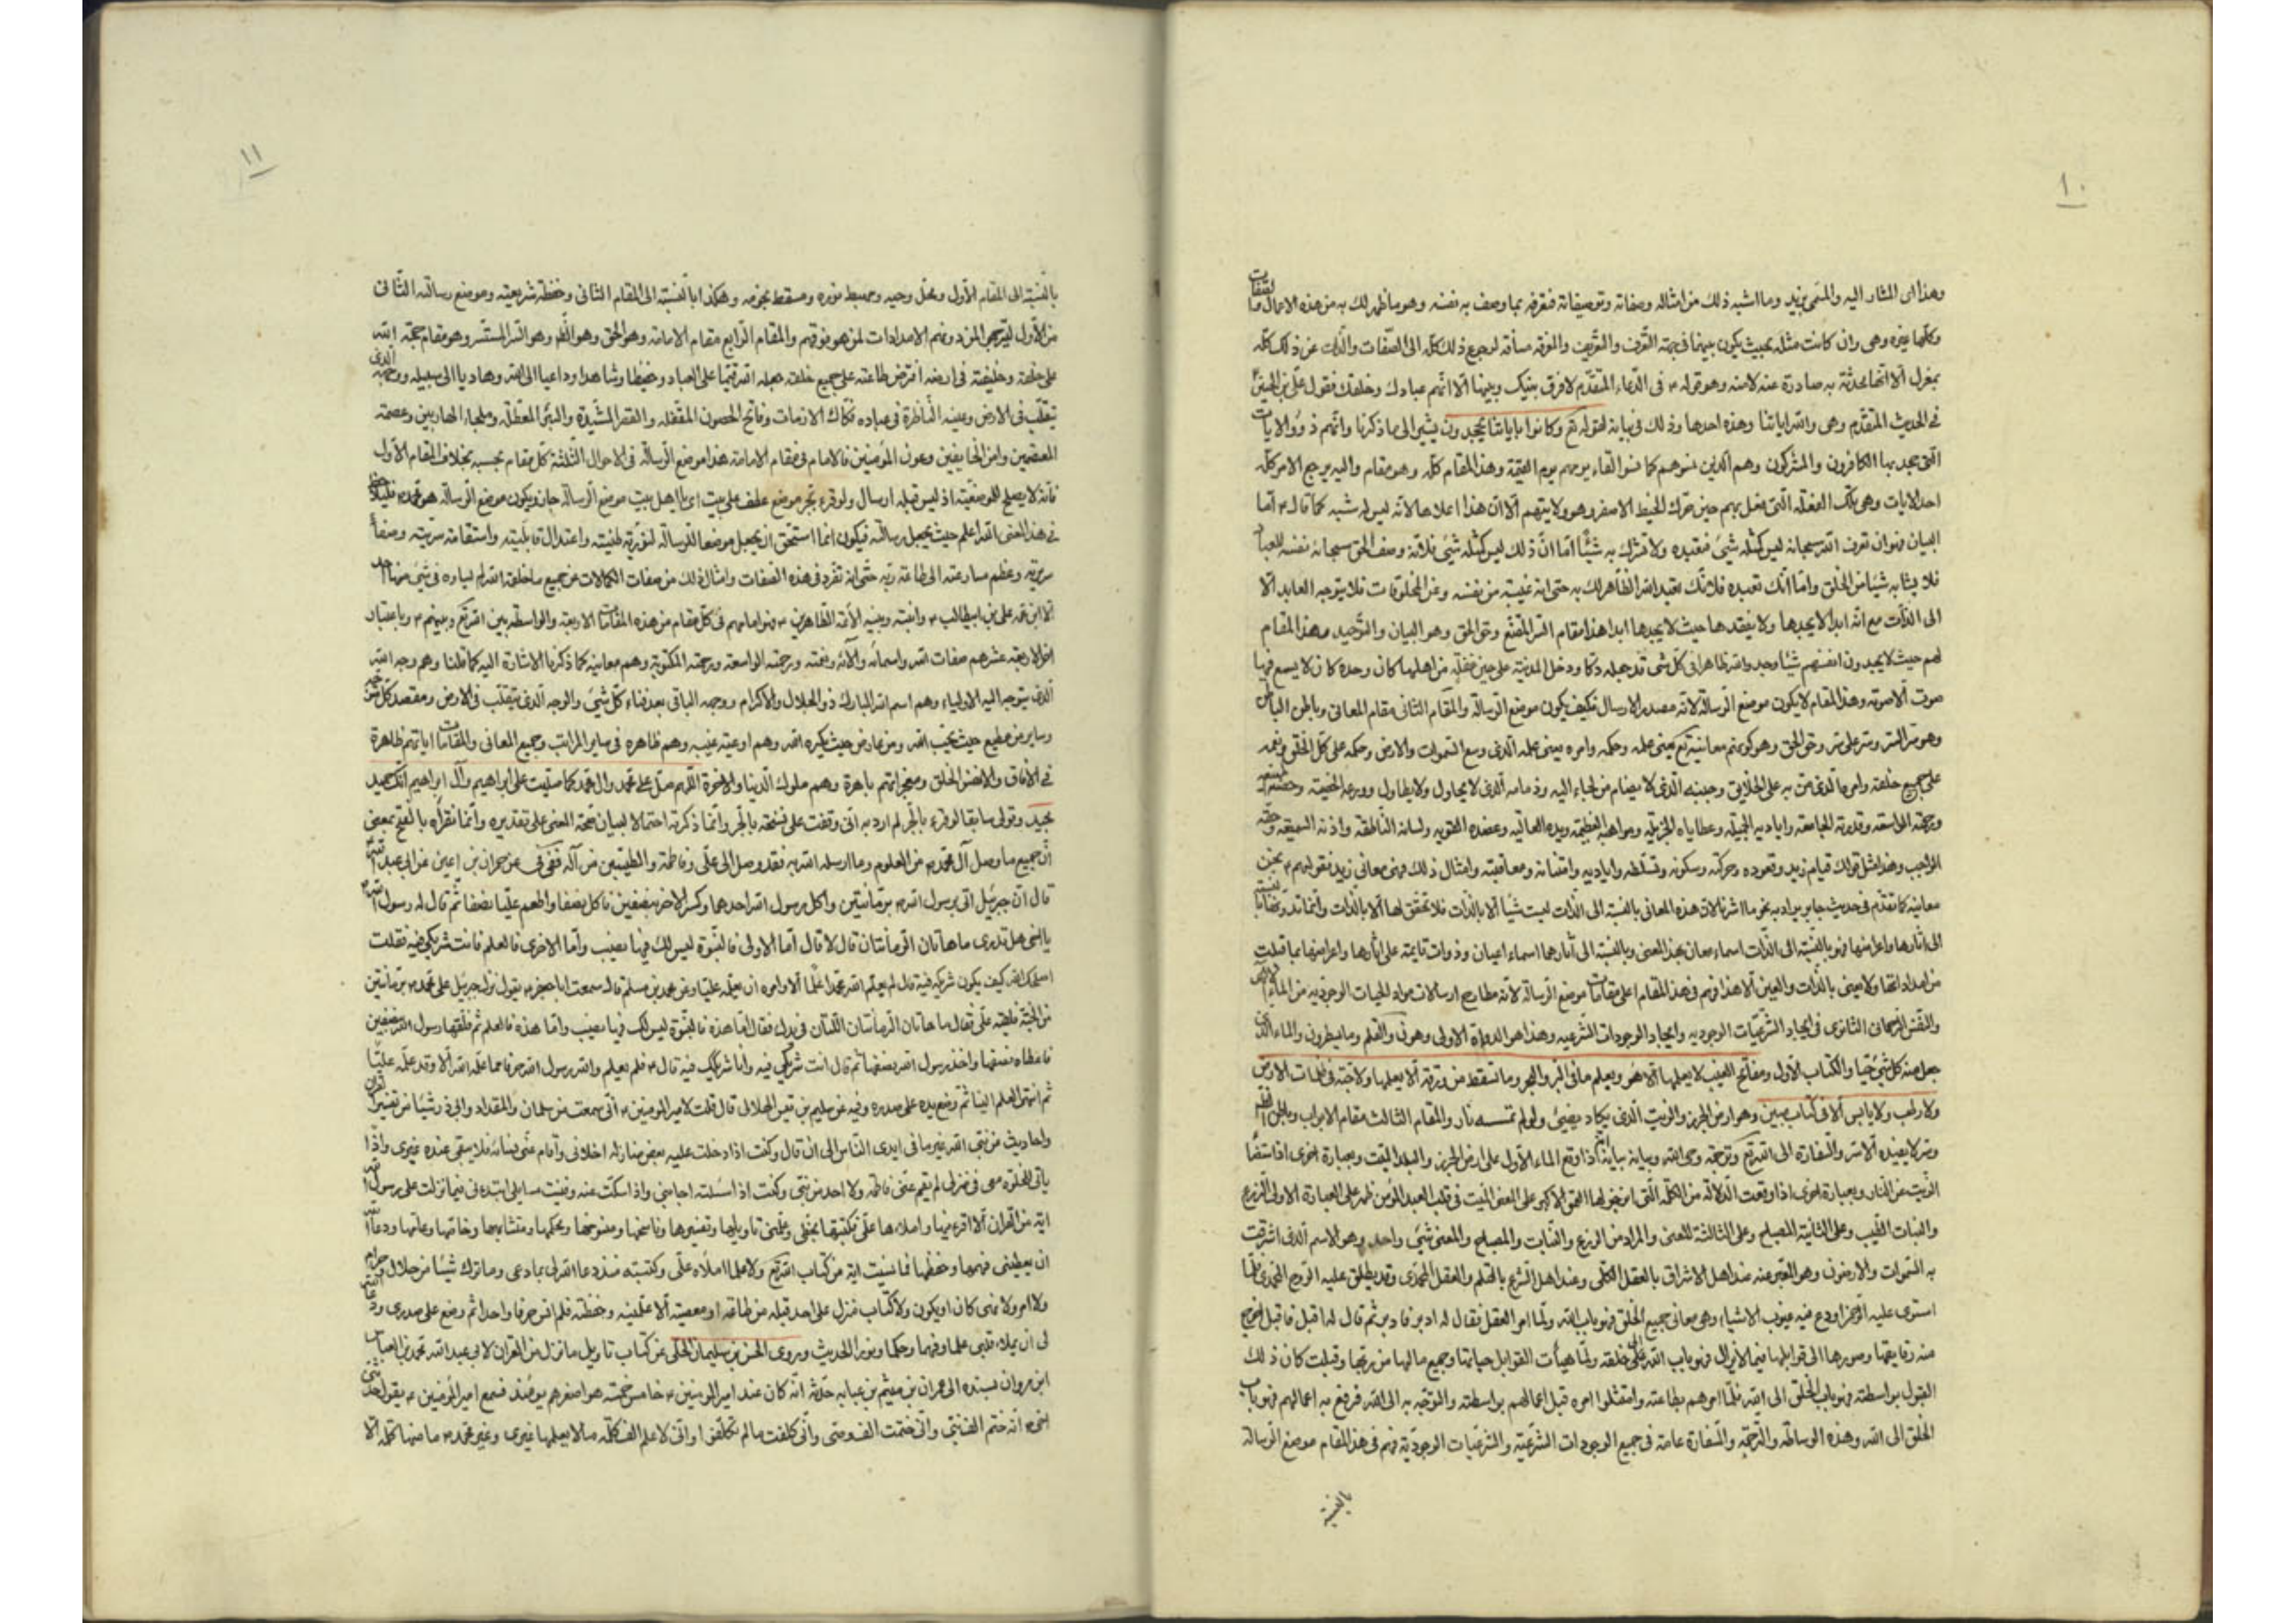 ١٠
وهذا اى المشار اليه والمسمى بزيد وما اشبه ذلك من امثاله وصفاته وتوصيفاته فتعرفه بما وصف به نفسه وهو ما ظهر لك به من هذه الامثال والصفات
وكلها غيره وهى وان كانت مثله بحيث يكون بينهما فى جهة التعرف والتعريف والمعرفة مساوقة لرجوع ذلك كله الى الصفات والذات عن ذلك كله
بمعزل الا انها محدثة به صادرة عنه لا منه وهو قوله ع فى الدعاء المتقدم لا فرق بينك وبينها الا انهم عبادك وخلقك فقول على بن الحسين
فى الحديث المتقدم وهى والله اياتنا وهذه احدها وذلك فى بيانه لقوله تع وكانوا باياتنا يجحدون يشير الى ما ذكرنا وانهم ذووا الايات
التى يجحد بها الكافرون والمشركون وهم الذين ننسوهم كما نسوا لقاء يومهم يوم القيمة وهذا المقام كله وهو مقام واليه يرجع الامر كله
احد الايات وهى تلك الفعلة التى فعل بهم حين حرك الخيط الاصفر وهو ولايتهم الا ان هذا اعلاها لانه ليس له شبه كما قال ع اما
البيان فهو ان تعرف الله سبحانه ليس كمثله شئ فتعبده ولا تشرك به شيئا اما ان ذلك ليس كمثله شئ فلانه وصف الحق سبحانه نفسه للعباد
فلا يشابه شيئا من الخلق واما انك تعبده فلانك تعبد الله الظاهر لك به حتى انه غيبه من نفسه وعن المخلوقات فلا يتوجه العابد الا
الى الذات مع انه ابدا لا يجدها ولا يفقدها حيث لا يجدها ابدا هذا مقام السر المقنع وحق الحق وهو البيان والتوحيد وهذا المقام
لهم حيث لا يجدون انفسهم شيئا وجد والله ظاهرا فى كل شئ قد جعله دكا ودخل المدينة على حين غفلة من اهلها كان وحده كان لا يسمع فيها
صوت الا صوته وهذا المقام لا يكون موضع الرسالة لانه مصدر الارسال فكيف يكون موضع الرسالة والمقام الثانى مقام المعانى وباطن الباطن
وهو سر السر وسر على سر وحق الحق وهو كونهم معانيه تع يعنى علمه وحكمه وامره يعنى علمه الذى وسع السموات والارض وحكمه على كل الخلق
على جميع خلقه وامره الذى من به على الخلايق وجنبه الذى لا يضام من لجاء اليه وذمامه الذى لا يحاول ولا يطاول ودرعه الحصينة وحصنه
ورحمته الواسعة وقدرته الجامعة واياديه الجميلة وعطاياه الجزيلة ومواهبه العظيمة ويده العالية وعضده القوية ولسانه الناطقة واذنه السميعة وحقه
الواجب وهذا مثل قولك قيام زيد وقعوده وحركته وسكونه وتسلطه واياديه وامتنانه ومعاقبته وامثال ذلك فهى معانى زيد فقولهم ع نحن
معانيه كما تقدم فى حديث جابر يراد به نحو ما اشرنا لان هذه المعانى بالنسبة الى الذات ليست شيئا الا بالذات فلا تحقق لها الا بالذات وانما تذوتها بالنسبة
الى اثارها واعراضها فهو بالنسبة الى الذات اسماء معان بهذا المعنى وبالنسبة الى آثارها اسماء اعيان وذوات قايمة على اثارها واعراضها بما قبلت
من امداداتها ولا يعنى بالذات والعين الا هذا فهم فى هذا المقام اعلى مقامات موضع الرسالة لانه مطارح ارسالات مواد الحيات الوجودية من الماء الاول
والنفس الرحمانى الثانوى فى ايجاد الشرعيات الوجودية وايجاد الوجودات الشرعيه وهذا هو الدواة الاولى وهو ن والقلم وما يسطرون والماء الذى
جعل منه كل شئ حيا والكتاب الاول ومفاتح الغيب لا يعلمها الا هو ويعلم ما فى البر والبحر وما تسقط من ورقة الا يعلمها ولا حبة فى ظلمات الارض
ولا رطب ولا يابس الا فى كتاب مبين وهو ارض الجرز والزيت الذى يكاد يضيئ ولو لم تمسسه نار والمقام الثالث مقام الابواب وباطن الظاهر
وسر لا يفيده الا سر والسفارة الى الله تع وترجمة وحى الله وبيانه بيانه اذا وقع الماء الاول على ارض الجرز والبلد الميت وبعبارة اخرى اذا استضاء
الزيت من النار وبعبارة اخرى اذا وقعت الدلالة من الكلمة التى انزجر لها العمق الاكبر على المعنى الميت فى قلب العبد المؤمن ظهر على العبارة الاولى الزرع
والنبات الطيب وعلى الثانية المصباح وعلى الثالثة المعنى والمراد من الزرع والنبات والمصباح والمعنى شئ واحد وهو الاسم الذى اشرقت
به السموات والارضون وهو المعبر عنه عند اهل الاشراق بالعقل الكلى وعند اهل الشرع بالقلم والعقل المحمدى وقد يطلق عليه الروح المحمدى فلما
استوى عليه الرحمن اودع فيه غيوب الاشياء وهى معانى جميع الخلق فهو باب الله ولما امر العقل فقال له ادبر فادبر ثم قال له اقبل فاقبل اخرج
منه رقايقها وصورها الى قوابلها فيما لايزال فهو باب الله الى خلقه ولما هيأت القوابل حياتها وجميع مالها من ربها وقبلت كان ذلك
القبول بواسطته فهو باب الخلق الى الله فلما امرهم بطاعته وامتثلوا امره قبل اعمالهم بواسطته والتوجه به الى الله فرفع به اعمالهم فهو باب
الخلق الى الله وهذه الوساطة والترجمة والسفارة عامة فى جميع الوجودات الشرعية والشرعيات الوجودية فهم فى هذا المقام موضع الرسالة
بالنسبة
١١
بالنسبة الى المقام الاول ومحل وحيه ومهبط نوره ومسقط نجومه وهكذا بالنسبة الى المقام الثانى وحفظة شريعته وموضع رسالته الثانى
من الاول لترجى المزد ومنهم الامدادات لمن هو فوقهم والمقام الرابع مقام الامامة وهو الحق وهو الظاهر وهو السر المستسر وهو مقام حجة الله
على خلقه وخليفته فى ارضه افترض طاعته على جميع خلقه جعله الله قيما على العباد وحفيظا وشاهدا وداعيا الى الله وهاديا الى سبيله ووجهه الذى
يتقلب فى الارض وعينه الناظرة فى عباده فكاك الازمات وفاتح الحصون المقفله والقصر المشيدة والبئر المعطلة وملجاء الهاربين وعصمة
المعتصمين وامن الخايفين وعون المؤمنين فالامام فى مقام الامامة هذا موضع الرسالة فى الاحوال الثلاثة كل مقام بحسبه بخلاف المقام الاول
فانه لا يصلح للموضعية اذ ليس قبله ارسال ولو قرء بجر موضع عطف على بيت اى يا اهل بيت موضع الرسالة جاز ويكون موضع الرسالة هو محمد ص
فى هذا المعنى الله اعلم حيث يجعل رسالته فيكون انما استحق ان يجعل موضعا للرسالة لنورية طينته واعتدال قابليته واستقامة سريته وصفاء
سريرته وعظم مسارعته الى طاعة ربه حتى انه تفرد فى هذه الصفات وامثال ذلك من صفات الكمالات عن جميع ما خلق الله لم يساوه فى شئ منها احد
الا ابن عمه على بن ابيطالب ع وابنته وبنيه الائمة الطاهرين ع فهو امامهم فى كل مقام من هذه المقامات الاربعة والواسطة بين الله تع وبينهم ع وباعتبار
الاربعة عشر هم صفات الله واسمائه وآلائه ونعمته ورحمته الواسعة ورحمته المكتوبة وهم معانيه كما ذكرنا الاشارة اليه كما قلنا وهم وجه الله
الذى يتوجه اليه الاولياء وهم اسم الله المبارك ذو الجلال والاكرام ووجهه الباقى بعد فناء كل شئ والوجه الذى يتقلب فى الارض ومقصد كل متوجه
وساير من مطيع حيث يحب الله ومن عاد من حيث يكره الله وهم اوعية غيبه وهم ظاهره فى ساير المراتب وجميع المعانى والمقامات اياتهم ظاهرة
فى الآفاق وانفس الخلق ومعجزاتهم باهرة وهم ملوك الدنيا والاخرة اللهم صل على محمد وال محمد كما صليت على ابراهيم وآل ابراهيم انك حميد
مجيد وقولى سابقا لو قرء بالجر لم ارد به انى وقفت على نسخة بالجر وانما ذكرته احتمالا لبيان صحة المعنى على تقديره وانما نقرأه بالفتح بمعنى
ان جميع ما وصل آل محمد ص من العلوم وما ارسله الله به فقد وصل الى على وفاطمة والطيبين من آله ففى فى عن حمران بن اعين عن ابى عبد الله
قال ان جبرئيل اتى رسول الله ص برمانتين واكل رسول الله احدهما وكسر الاخر بنصفين فاكل نصفا واطعم عليا نصفا ثم قال له رسول الله ص
يا اخى هل تدرى ما هاتان الرمانتان قال لا قال اما الاولى فالنبوة ليس لك فيها نصيب واما الاخرى فالعلم فانت شريكى فيه فقلت
اصلحك الله كيف يكون شريكه فيه قال لم يعلم الله محمدا علما الا وامره ان يعلمه عليا وعن محمد بن مسلم قال سمعت ابا جعفر ع يقول نزل جبرئيل على محمد ص برمانتين
من الجنة فلقيه على فقال ما هاتان الرمانتان اللتان فى يدك فقال اما هذه فالنبوة ليس لك فيها نصيب واما هذه فالعلم ثم فلقها رسول الله بنصفين
فاعطاه نصفها واخذ رسول الله نصفها ثم قال انت شريكى فيه وانا شريكك فيه قال ع فلم يعلم والله رسول الله حرفا مما علمه الله الا وقد علمه عليا
ثم انتهى العلم الينا ثم وضع يده على صدره وفيه عن سليم بن قيس الهلالى قال قلت لامير المومنين ع انى سمعت من سلمان والمقداد وابى ذر شيئا من تفسير القران
واحاديث من نبى الله غير ما فى ايدى الناس الى ان قال وكنت اذا دخلت عليه بعض منازله اخلانى واقام عنى نسائه فلا يبقى عنده غيرى واذا
يأتى للخلوة معى فى منزلى لم يقم عنى فاطمة ولا احد من بنى وكنت اذا سئلته اجابنى واذا سكت عنه وفنيت مسايلى ابتدءنى فيما نزلت على رسول الله
اية من القران الا اقرءنيها واملاءها على فكتبتها بخطى وعلمنى تاويلها وتفسيرها وناسخها ومنسوخها ومحكمها ومتشابهها وخاصها وعامها ودعا الله
ان يعطينى فهمها وحفظها فما نسيت اية من كتاب الله تع ولا علما املاه على وكتبته منذ دعا الله لى بما دعى وما ترك شيئا من حلال وحرام
ولا امر ولا نهى كان او يكون ولا كتاب منزل على احد قبله من طاعة او معصية الا علمنيه وحفظته فلم انس حرفا واحدا ثم وضع على صدرى ودعا الله
لى ان يملاء قلبى علما وفهما وحكما ونورا الحديث وروى الحسن بن سليمان الحلى عن كتاب تاويل ما نزل من القران لابى عبد الله محمد بن العباس
ابن مروان بسنده الى عمران بن ميثم بن عبايه حدثه انه كان عند امير المومنين ع خامس خمسة هو اصغرهم يومئذ فسمع امير المؤمنين ع يقول حدثنى
اخى ص انه ختم الف نبى وانى ختمت الف وصى وانى كلفت ما لم تكلفوا وانى لاعلم الف كلمة ما لا يعلمها غيرى وغير محمد ص ما منها كلمة الا